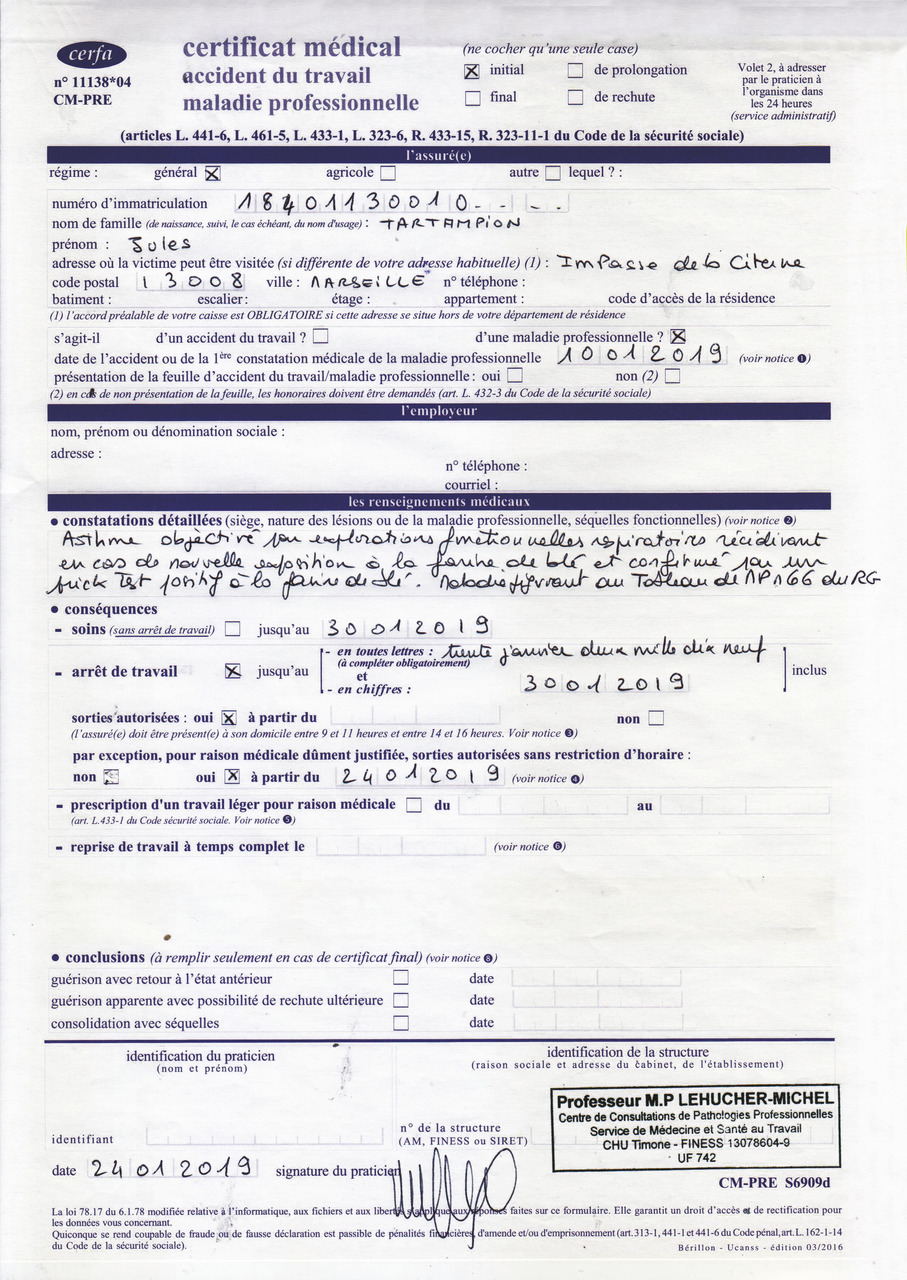 cerfa
n° 11138*04
CM-PRE
certificat médical
accident du travail
maladie professionnelle
(ne cocher qu'une seule case)
initial de prolongation
final de rechute
Volet 2, à adresser
par le praticien à
l'organisme dans
les 24 heures
(service administratif)
(articles L. 441-6, L. 461-5, L. 433-1, L. 323-6, R. 433-15, R. 323-11-1 du Code de la sécurité sociale)
l'assuré(e)
régime : général agricole autre lequel ? :
numéro d'immatriculation 18401130010- - - -
nom de famille (de naissance, suivi, le cas échéant, du nom d'usage) : TARTAMPION
prénom : Jules
adresse où la victime peut être visitée (si différente de votre adresse habituelle) (1) : Impasse de la Citerne
code postal 13008 ville : MARSEILLE n° téléphone :
batiment : escalier : étage : appartement : code d'accès de la résidence
(1) l'accord préalable de votre caisse est OBLIGATOIRE si cette adresse se situe hors de votre département de résidence
s'agit-il d'un accident du travail ? d'une maladie professionnelle ?
date de l'accident ou de la 1ère constatation médicale de la maladie professionnelle 10012019 (voir notice 1)
présentation de la feuille d'accident du travail/maladie professionnelle : oui non (2)
(2) en cas de non présentation de la feuille, les honoraires doivent être demandés (art. L. 432-3 du Code de la sécurité sociale)
l'employeur
nom, prénom ou dénomination sociale :
adresse :
n° téléphone :
courriel :
les renseignements médicaux
• constatations détaillées (siège, nature des lésions ou de la maladie professionnelle, séquelles fonctionnelles) (voir notice 2)
Asthme objectivé par explorations fonctionnelles respiratoires récidivant
en cas de nouvelle exposition à la farine de blé et confirmé par un
prick test positif à la farine de blé. Maladie figurant au Tableau de MP n°66 du RG
• conséquences
- soins (sans arrêt de travail) jusqu'au 30012019
- arrêt de travail jusqu'au - en toutes lettres : trente janvier deux mille dix neuf
(à compléter obligatoirement)
et
- en chiffres : 30012019 inclus
sorties autorisées : oui à partir du non
(l'assuré(e) doit être présent(e) à son domicile entre 9 et 11 heures et entre 14 et 16 heures. Voir notice 3)
par exception, pour raison médicale dûment justifiée, sorties autorisées sans restriction d'horaire :
non oui à partir du 24012019 (voir notice 4)
- prescription d'un travail léger pour raison médicale du au
(art. L.433-1 du Code sécurité sociale. Voir notice 5)
- reprise de travail à temps complet le (voir notice 6)
• conclusions (à remplir seulement en cas de certificat final) (voir notice 8)
guérison avec retour à l'état antérieur date
guérison apparente avec possibilité de rechute ultérieure date
consolidation avec séquelles date
identification du praticien
(nom et prénom)
identification de la structure
(raison sociale et adresse du cabinet, de l'établissement)
Professeur M.P LEHUCHER-MICHEL
Centre de Consultations de Pathologies Professionnelles
Service de Médecine et Santé au Travail
CHU Timone - FINESS 13078604-9
UF 742
identifiant
n° de la structure
(AM, FINESS ou SIRET)
date 24012019 signature du praticien
CM-PRE S6909d
La loi 78.17 du 6.1.78 modifiée relative à l'informatique, aux fichiers et aux libertés s'applique aux réponses faites sur ce formulaire. Elle garantit un droit d'accès et de rectification pour
les données vous concernant.
Quiconque se rend coupable de fraude ou de fausse déclaration est passible de pénalités financières, d'amende et/ou d'emprisonnement (art. 313-1, 441-1 et 441-6 du Code pénal, art. L. 162-1-14
du Code de la sécurité sociale).
Bérillon - Ucanss - édition 03/2016